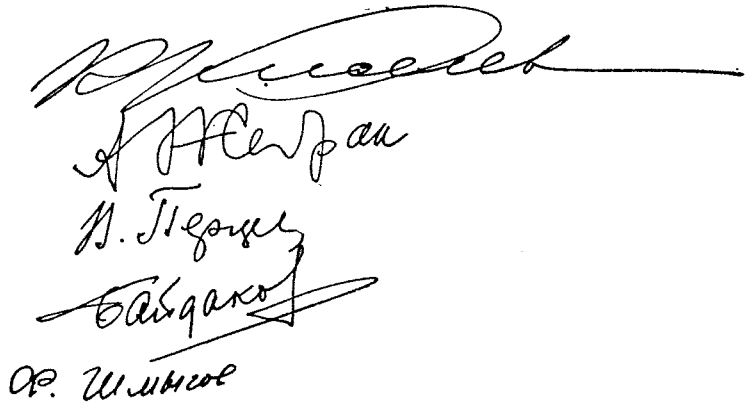 А Жебрак
Н. Перцев
Байдаков
Ф. Шмыгов